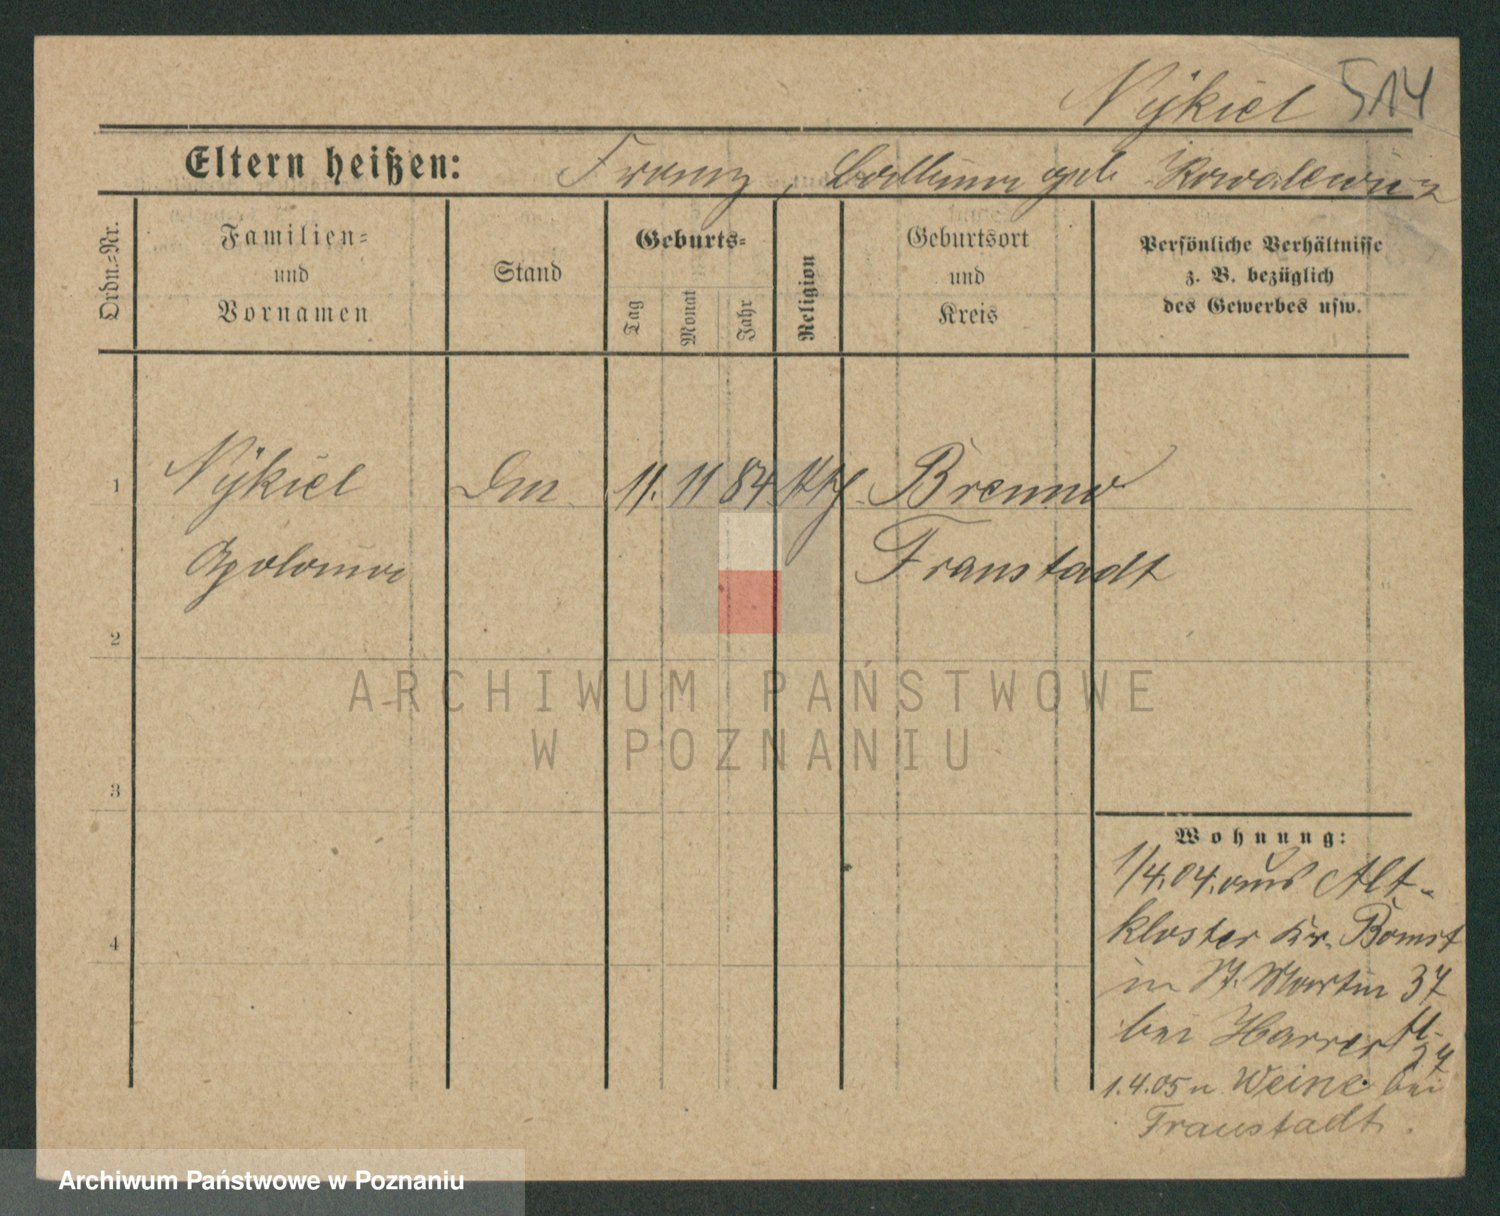 Nÿkiel 514
Eltern heißen: Franz, geb. Kowalewicz
Ordn.=Nr.
Familien=
und
Vornamen
Stand
Geburts=
Tag
Monat
Jahr
Religion
Geburtsort
und
Kreis
Persönliche Verhältnisse
z. B. bezüglich
des Gewerbes usw.
1 Nÿkiel 11. 11 84 kth. Brenno
Apolonia Fraustadt
2
3
4
Wohnung:
1/4.04. aus Alt-
kloster Kr. Bomst
in St. Martin 37
bei Harrer
1.4.05 n. Weine bei
Fraustadt.
ARCHIWUM PAŃSTWOWE
W POZNANIU
Archiwum Państwowe w Poznaniu